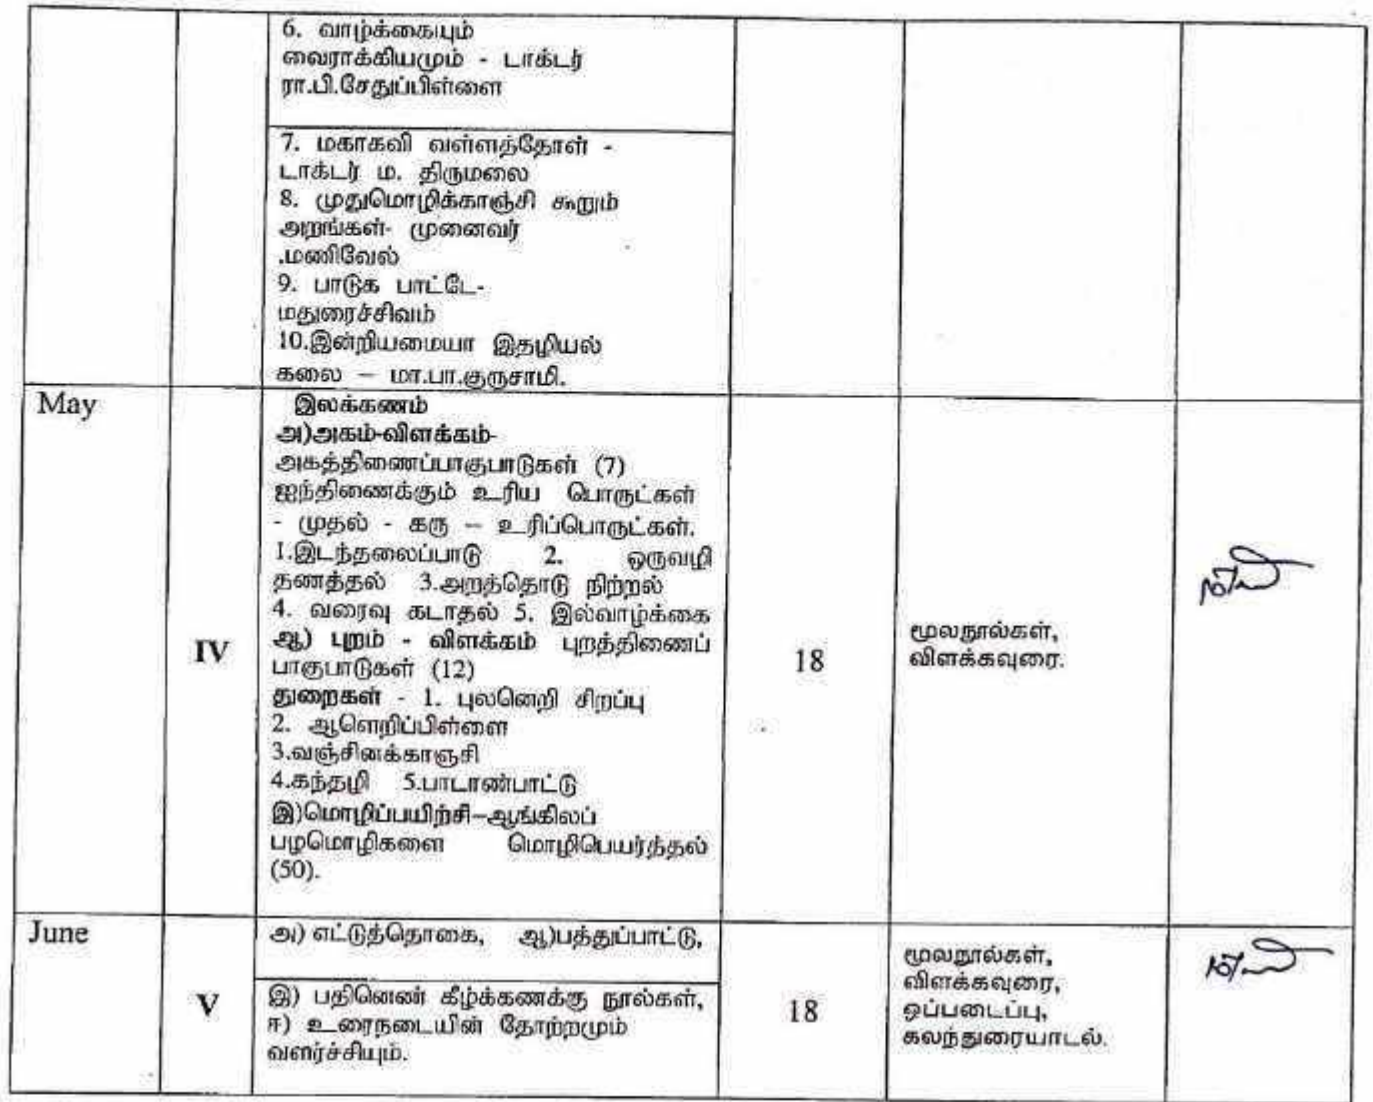 6. வாழ்க்கையும்
வைராக்கியமும் - டாக்டர்
ரா.பி.சேதுப்பிள்ளை
7. மகாகவி வள்ளத்தோள் -
டாக்டர் ம. திருமலை
8. முதுமொழிக்காஞ்சி கூறும்
அறங்கள்- முனைவர்
.மணிவேல்
9. பாடுக பாட்டே-
மதுரைச்சிவம்
10.இன்றியமையா இதழியல்
கலை – மா.பா.குருசாமி.
May
IV
இலக்கணம்
அ)அகம்-விளக்கம்-
அகத்திணைப்பாகுபாடுகள் (7)
ஐந்திணைக்கும் உரிய பொருட்கள்
- முதல் - கரு – உரிப்பொருட்கள்.
1.இடந்தலைப்பாடு 2. ஒருவழி
தணத்தல் 3.அறத்தொடு நிற்றல்
4. வரைவு கடாதல் 5. இல்வாழ்க்கை
ஆ) புறம் - விளக்கம் புறத்திணைப்
பாகுபாடுகள் (12)
துறைகள் - 1. புலனெறி சிறப்பு
2. ஆளெறிப்பிள்ளை
3.வஞ்சினக்காஞ்சி
4.கந்தழி 5.பாடாண்பாட்டு
இ)மொழிப்பயிற்சி–ஆங்கிலப்
பழமொழிகளை மொழிபெயர்த்தல்
(50).
18
மூலநூல்கள்,
விளக்கவுரை.
June
V
அ) எட்டுத்தொகை, ஆ)பத்துப்பாட்டு,
இ) பதினெண் கீழ்க்கணக்கு நூல்கள்,
ஈ) உரைநடையின் தோற்றமும்
வளர்ச்சியும்.
18
மூலநூல்கள்,
விளக்கவுரை,
ஒப்படைப்பு,
கலந்துரையாடல்.